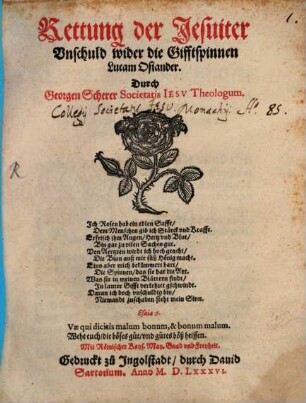 Rettung der Jesuiter
Vnschuld wider die Gifftspinnen
Lucam Osiander.
Durch
Georgen Scherer Societatis IESV Theologum.
Collegij Societatis Jesu Monachij Ao 85.
Ich Rosen hab ein edlen Safft/
Dem Menschen gib ich Stärck vnd Krafft.
Erfrisch jhm Augen/ Hertz vnd Blut/
Bin gar zu vilen Sachen gut.
Von Aertzten wirdt ich hoch geacht/
Die Bien auß mir süß Hönig macht.
Eins aber mich bekümmert hart/
Die Spinnen/ das sie hat die Art.
Was sie in meinen Blättern findt/
In lauter Gifft verkehret geschwindt.
Daran ich doch vnschuldig bin/
Niemandt zuschaden steht mein Sinn.
Esaiæ 5.
Væ qui dicitis malum bonum, & bonum malum.
Wehe euch/ die böses gůt/ vnd gůtes böß heissen.
Mit Römischer Kays. May. Gnad vnd Freyheit.
Gedruckt zu Ingolstadt/ durch Dauid
Sartorium. Anno M. D. LXXXVI.